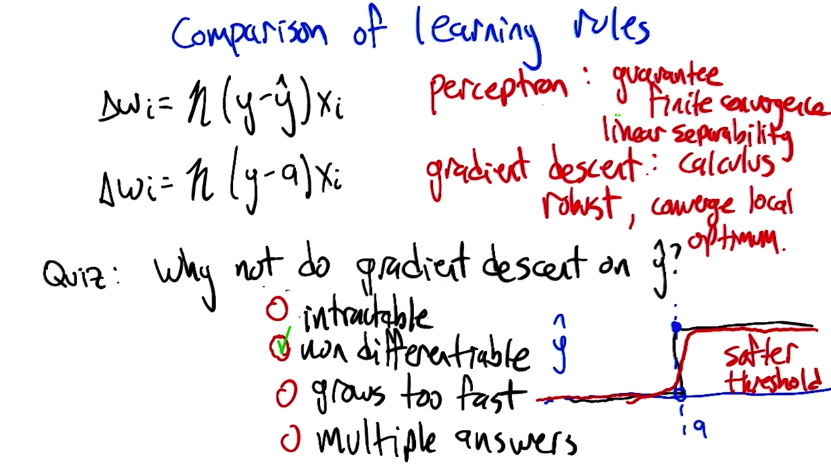 Comparison of learning rules
Δwi = η (y-ŷ)xi
perceptron : guarantee
finite convergence
linear separability
Δwi = η (y-a)xi
gradient descent : calculus
robust, converge local
optimum.
Quiz: Why not do gradient descent on ŷ?
intractable
non differentiable
grows too fast
multiple answers
ŷ
softer
threshold
a